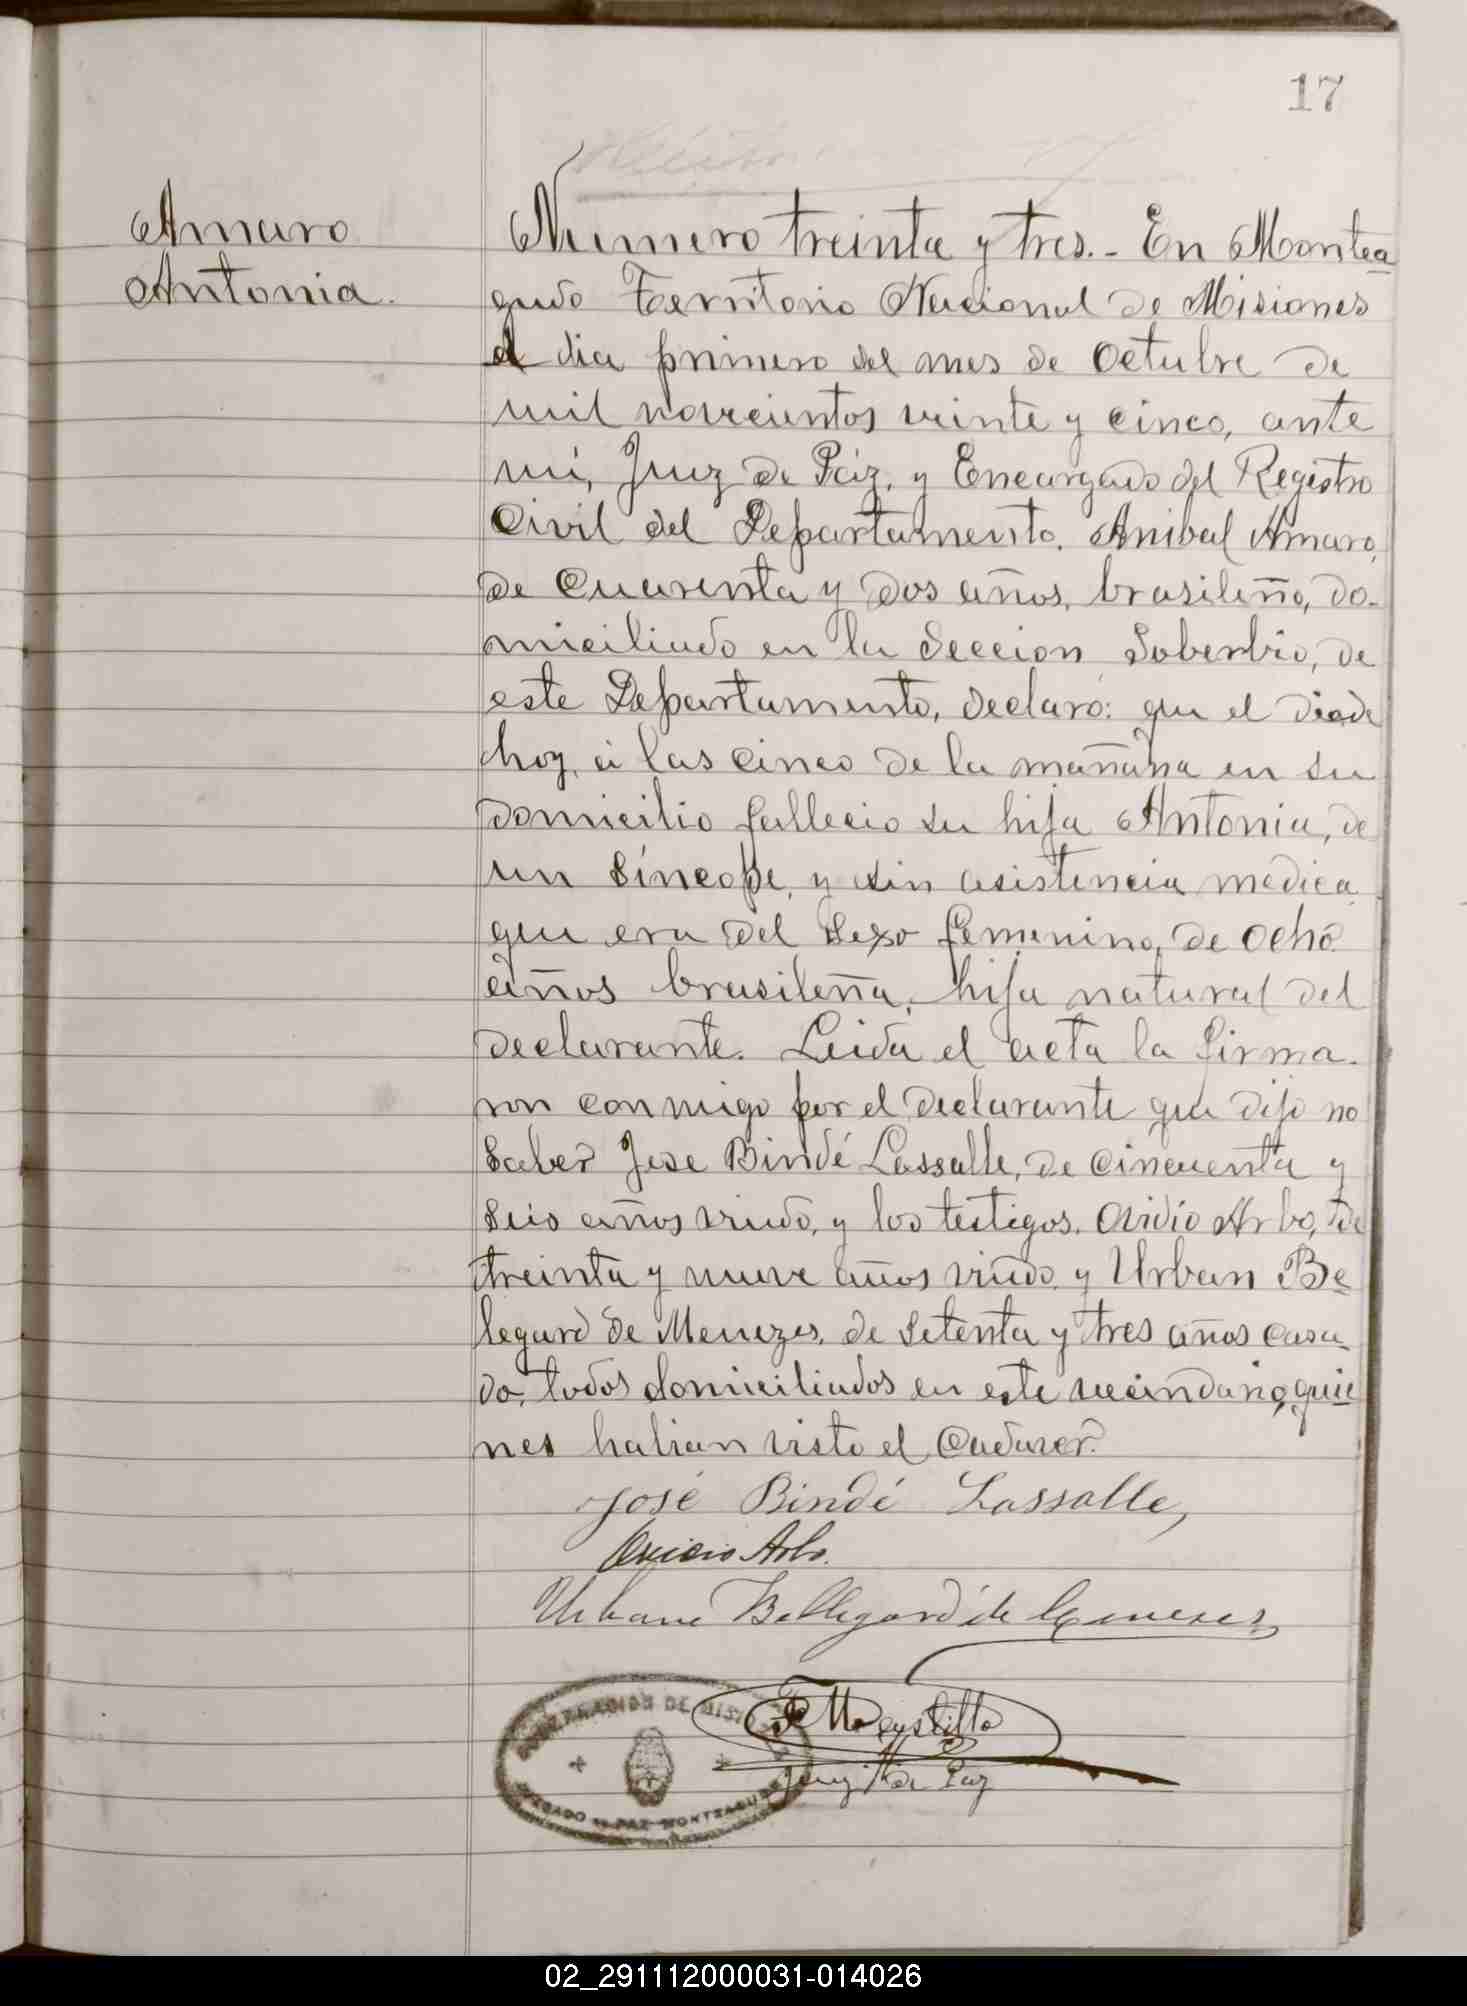 17
Amaro
Antonia.
Numero treinta y tres.- En Montea
gudo Territorio Nacional de Misiones
el dia primero del mes de Octubre de
mil novecientos veinte y cinco, ante
mi, Juez de Páz, y Encargado del Registro
Civil del Departamento. Anibal Amaro,
de cuarenta y dos años, brasileño, do-
miciliado en la Seccion Soberbio, de
este Departamento, declaró: que el dia de
hoy, á las cinco de la mañana en su
domicilio fallecio su hija Antonia, de
un síncope, y sin asistencia medica
que era del sexo femenino, de ocho
años brasileña, hija natural del
declarante. Leida el acta la firma-
ron conmigo por el declarante que dijo no
saber Jose Bindé Lassalle, de cincuenta y
seis años viudo, y los testigos. Ovidio Arbo, de
treinta y nueve años viudo y Urban Be
legard de Menezes, de setenta y tres años casa-
do, todos domiciliados en este vecindario, quie
nes habian visto el cadaver.
José Bindé Lassalle,
Ovidio Arbo.
Urbano Bellegard de Menezes
Juez de Paz
GOBERNACION DE MISIONES
JUZGADO DE PAZ MONTEAGUDO
02_291112000031-014026